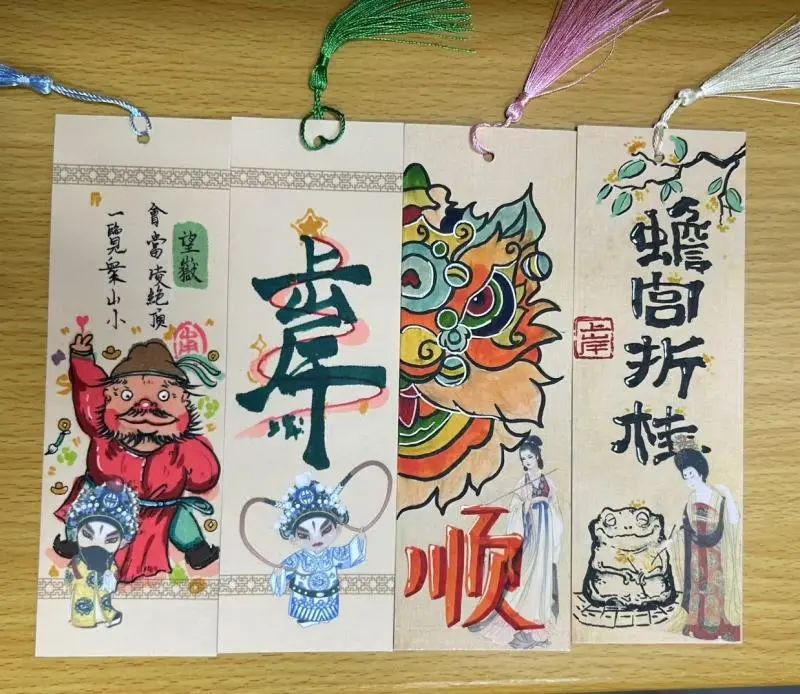 望嶽
會當凌絕頂
一覽眾山小
上岸
顺
上岸
蟾宫折桂